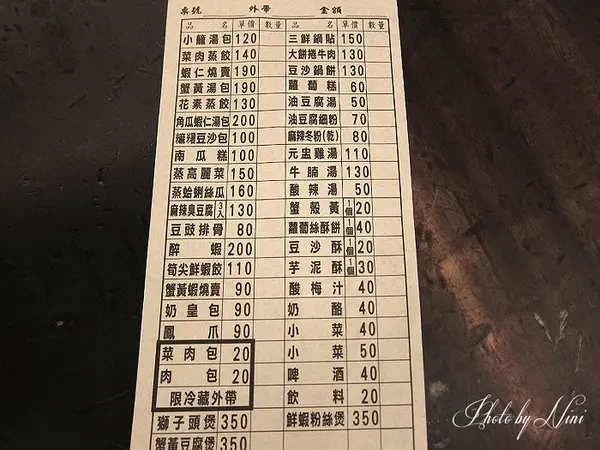 桌號 外帶 金額
品名 單價 數量 品名 單價 數量
小籠湯包 120 三鮮鍋貼 150
菜肉蒸餃 140 大餅捲牛肉 130
蝦仁燒賣 190 豆沙鍋餅 130
蟹黃湯包 190 蘿蔔糕 60
花素蒸餃 130 油豆腐湯 50
角瓜蝦仁湯包 200 油豆腐細粉 70
豆沙包 100 麻辣冬粉(乾) 80
南瓜糕 100 元盅雞湯 110
蒸高麗菜 150 牛腩湯 130
蒸蛤蜊絲瓜 160 酸辣湯 50
麻辣臭豆腐 3入 130 蟹殼黃 1個 20
豆豉排骨 80 蘿蔔絲酥餅 1個 40
醉蝦 200 豆沙酥 1個 20
筍尖鮮蝦餃 110 芋泥酥 1個 30
蟹黃蝦燒賣 90 酸梅汁 40
奶皇包 90 奶酪 40
鳳爪 90 小菜 40
菜肉包 20 小菜 50
肉包 20 啤酒 40
限冷藏外帶 飲料 20
獅子頭煲 350 鮮蝦粉絲煲 350
蟹黃豆腐煲 350
Photo by Nini